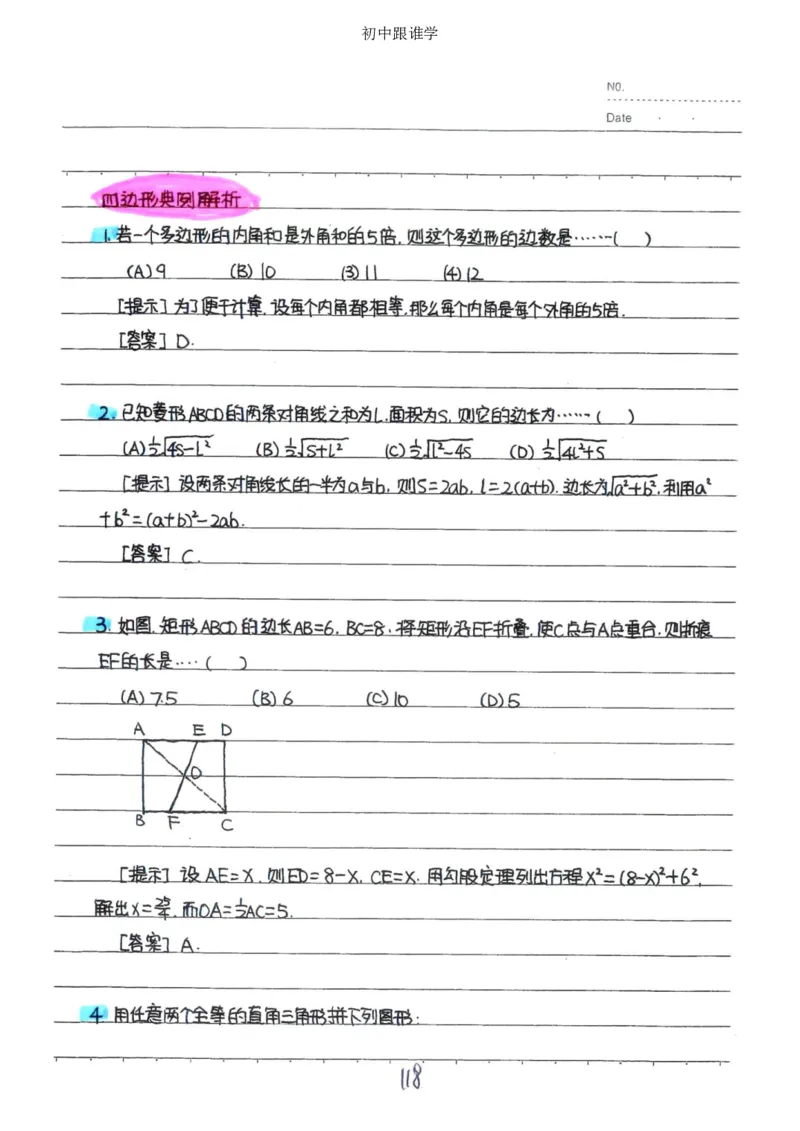 初中跟谁学
NO.
Date
四边形典例解析
1.若一个多边形的内角和是外角和的5倍,则这个多边形的边数是……( )
(A)9 (B)10 (3)11 (4)12
[提示]为了便于计算,设每个内角都相等,那么每个内角是每个外角的5倍.
[答案]D.
2.已知菱形ABCD的两条对角线之和为l,面积为S,则它的边长为……( )
(A)½√4S-l² (B)½√S+l² (C)½√l²-4S (D)½√4l²+S
[提示]设两条对角线长的一半为a与b,则S=2ab,l=2(a+b).边长为√a²+b²,利用a²
+b²=(a+b)²-2ab.
[答案]C.
3.如图,矩形ABCD的边长AB=6,BC=8.将矩形沿EF折叠,使C点与A点重合,则折痕
EF的长是….( )
(A)7.5 (B)6 (C)10 (D)5
A E D
O
B F C
[提示]设AE=x,则ED=8-x,CE=x.用勾股定理列出方程x²=(8-x)²+6²,
解出x=25/4,而OA=½AC=5.
[答案]A.
4 用任意两个全等的直角三角形拼下列图形:
118